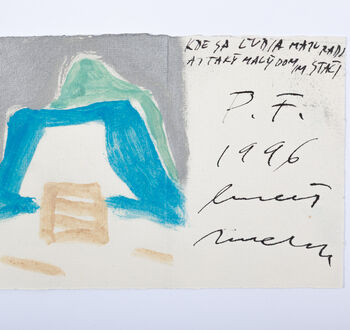 KDE SA ĽUDIA MAJÚ RADI
AJ TAKÝ MALÝ DOM IM STAČÍ
P.F.
1996